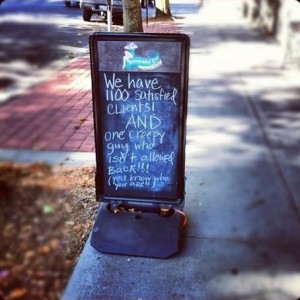 We have
1100 satisfied
clients!
AND
one creepy
guy who
isn't allowed
BACK!!!
(you know who
you are!!)